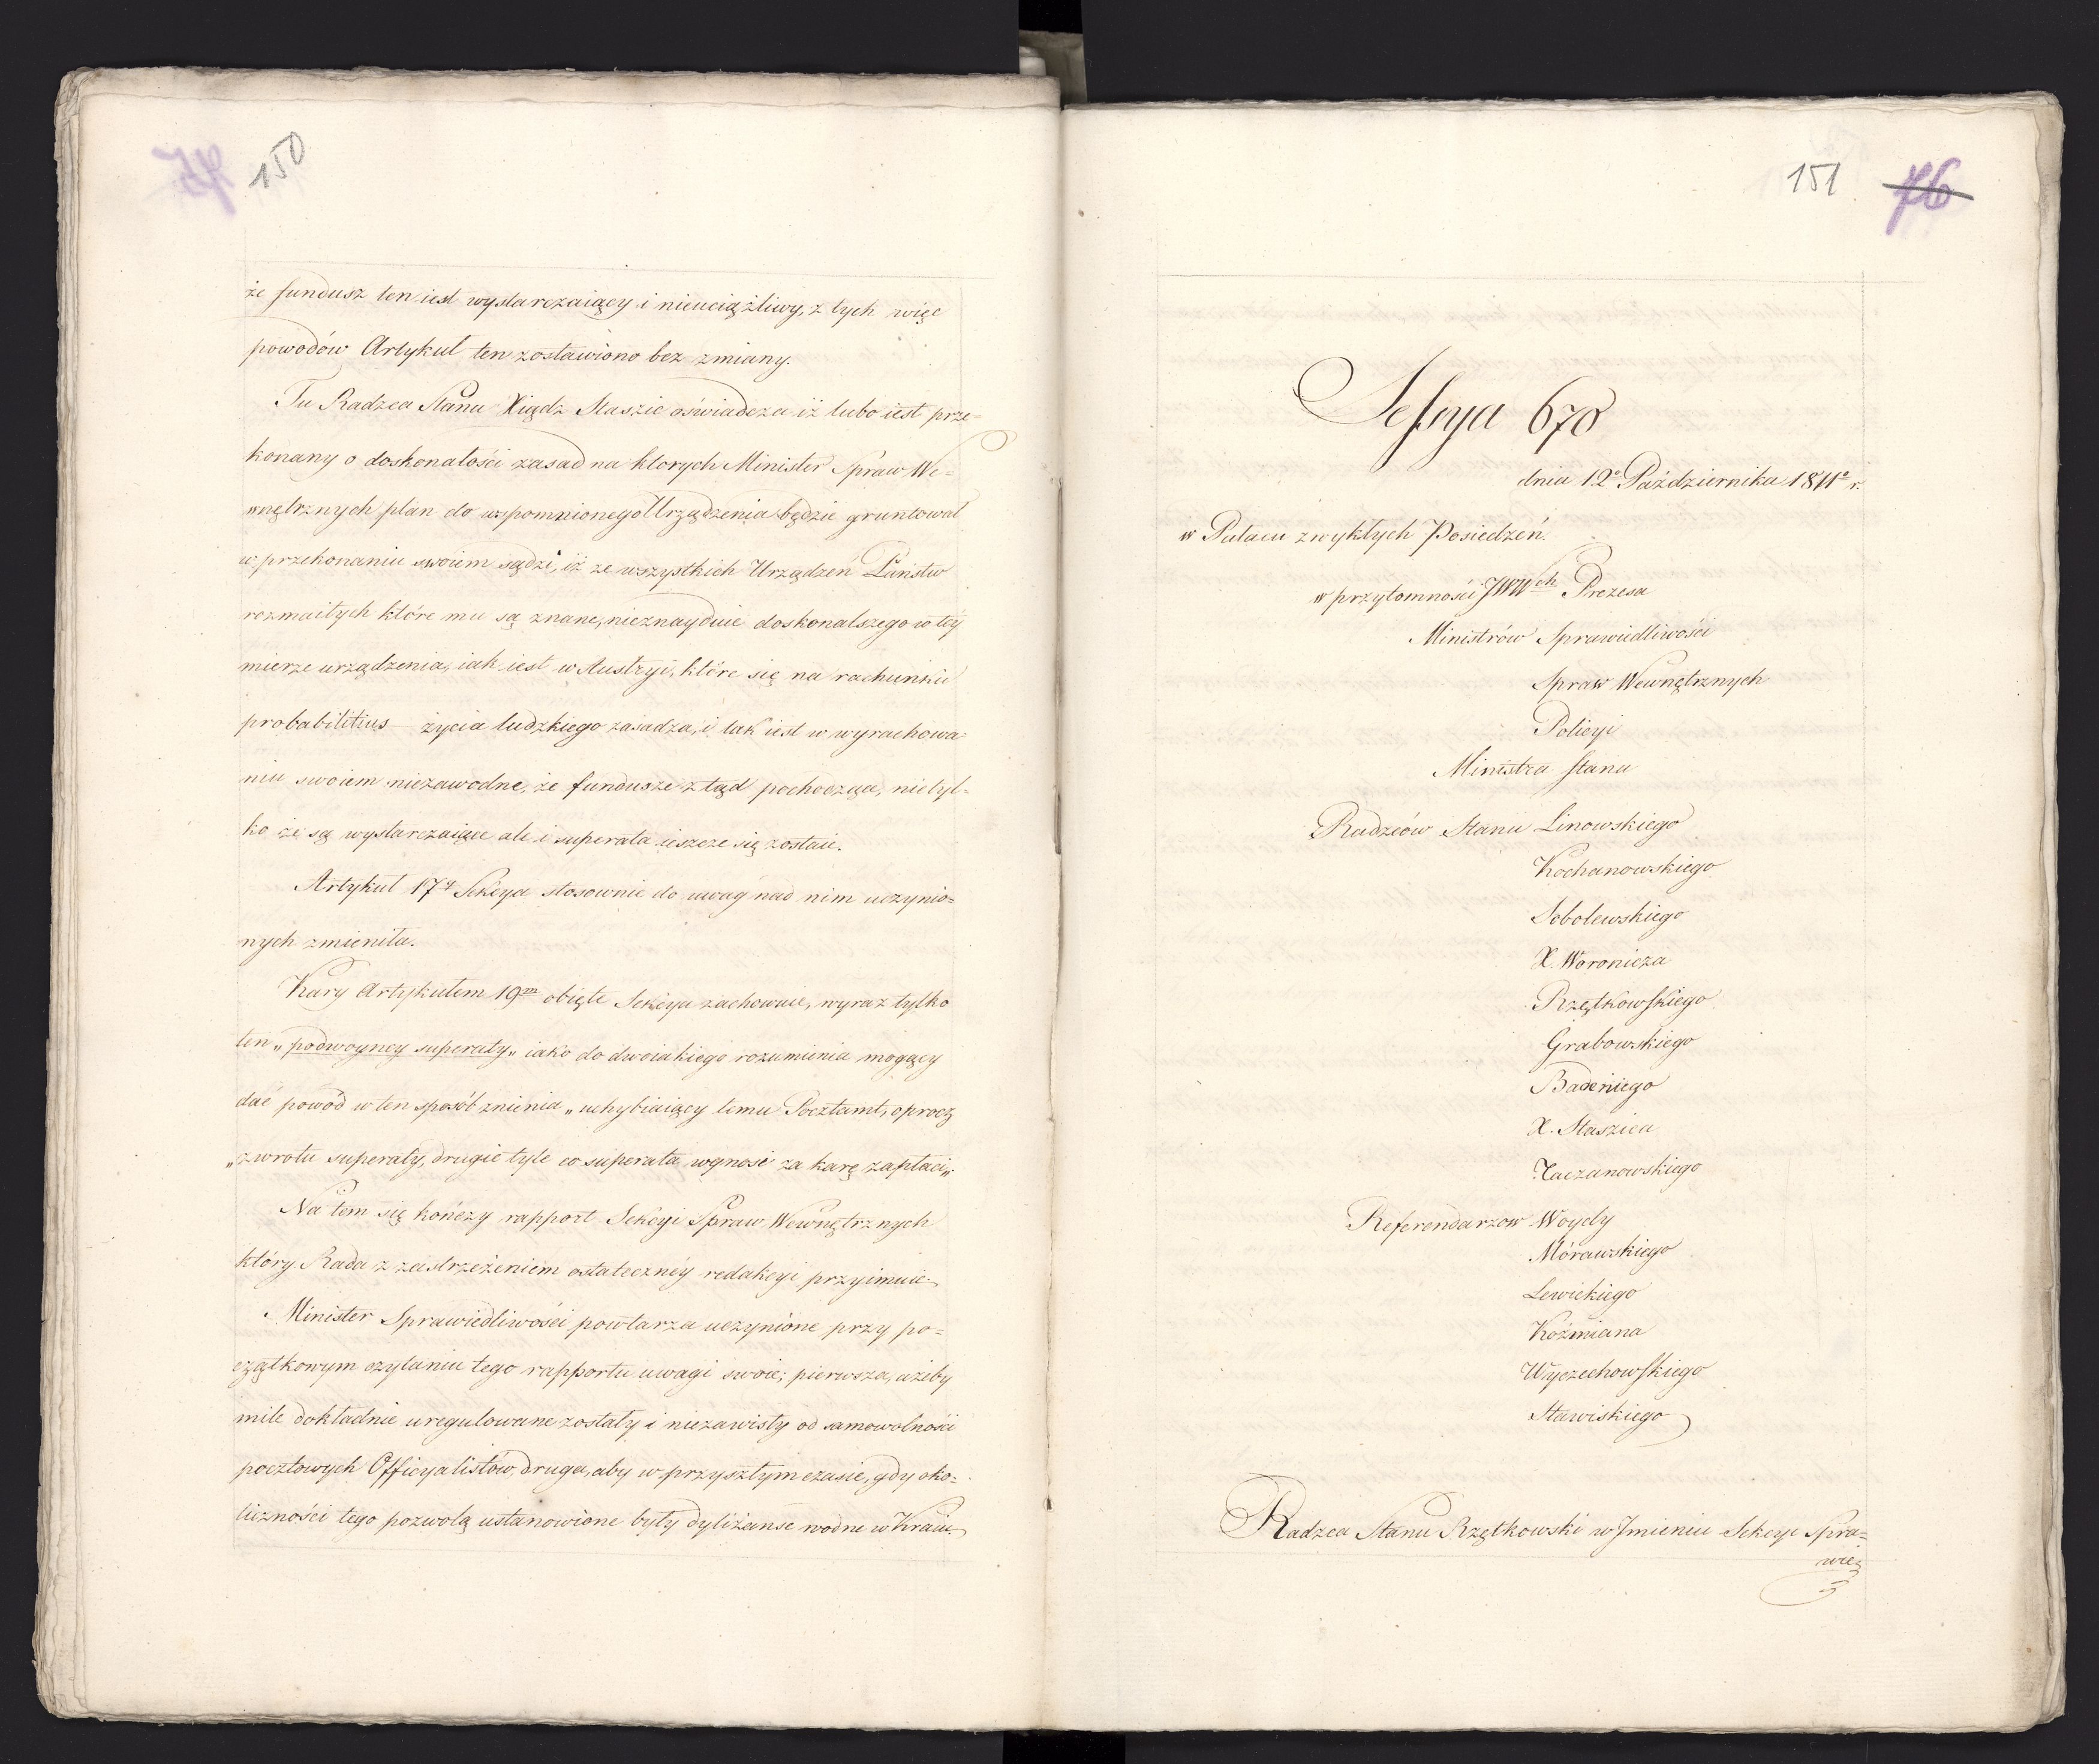 150
że fundusz ten iest wystarczaiący i nieuciążliwy, z tych więc
powodów Artykuł ten zostawiono bez zmiany.
Tu Radzca Stanu Xiądz Staszic oświadcza iż lubo iest prze=
konany o doskonałości zasad na ktorych Minister Spraw We=
wnętrznych plan do wspomnionego Urządzenia będzie gruntował
w przekonaniu swoiem sądzi, iż ze wszystkich Urządzeń Państw
rozmaitych które mu są znane, nieznayduie doskonalszego w téy
mierze urządzenia, iak iest w Austryi, które się na rachunku
probabilitius życia ludzkiego zasadza, i tak iest w wyrachowa=
niu swoiem niezawodne, że fundusze ztąd pochodzące, nietyl=
ko że są wystarczaiące ale i superata ieszcze się zostaie.
Artykuł 17y Sekcya stosownie do uwag nad nim uczynio=
nych zmieniła.
Kary Artykułem 19m obięte Sekcya zachowuie, wyraz tylko
ten „podwoyney superaty„ iako do dwoiakiego rozumienia mogący
dać powód w ten sposób zmienia „uchybiaiący temu Pocztamt, oprocz
„zwrotu superaty, drugie tyle co superata wynosi za karę zapłaci„.
Na tem się kończy rapport Sekcyi Spraw Wewnętrznych
który Rada z zastrzeżeniem ostateczney redakcyi przyimuie.
Minister Sprawiedliwości powtarza uczynione przy po=
czątkowym czytaniu tego rapportu uwagi swoie; pierwsza, ażiby
mile dokładnie uregulowane zostały i niezawisły od samowolności
pocztowych Officyalistów, druga, aby w przyszłym czasie, gdy oko=
liczności tego pozwolą ustanowione były dyliżanse wodne w Kraiu
151 76
Sessya 678
dnia 12o Października 1811o r.
w Pałacu zwykłych Posiedzeń.
w przytomności JWWch Prezesa
Ministrów Sprawiedliwości
Spraw Wewnętrznych
Policyi
Ministra Stanu
Radzców Stanu Linowskiego
Kochanowskiego
Sobolewskiego
X. Woronicza
Rzętkowskiego
Grabowskiego
Badeniego
X. Staszica
Zaczanowskiego
Referendarzow Woydy
Mórawskiego
Lewickiego
Koźmiana
Wyczechowskiego
Stawiskiego
Radzca Stanu Rzętkowski w Jmieniu Sekcyi Spra=
wie=